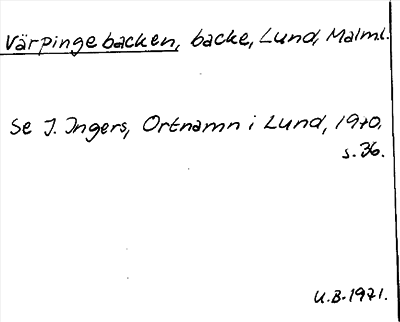 Värpingebacken, backe, Lund, Malml.
Se J. Ingers, Ortnamn i Lund, 1970,
s. 36.
U.B. 1971.